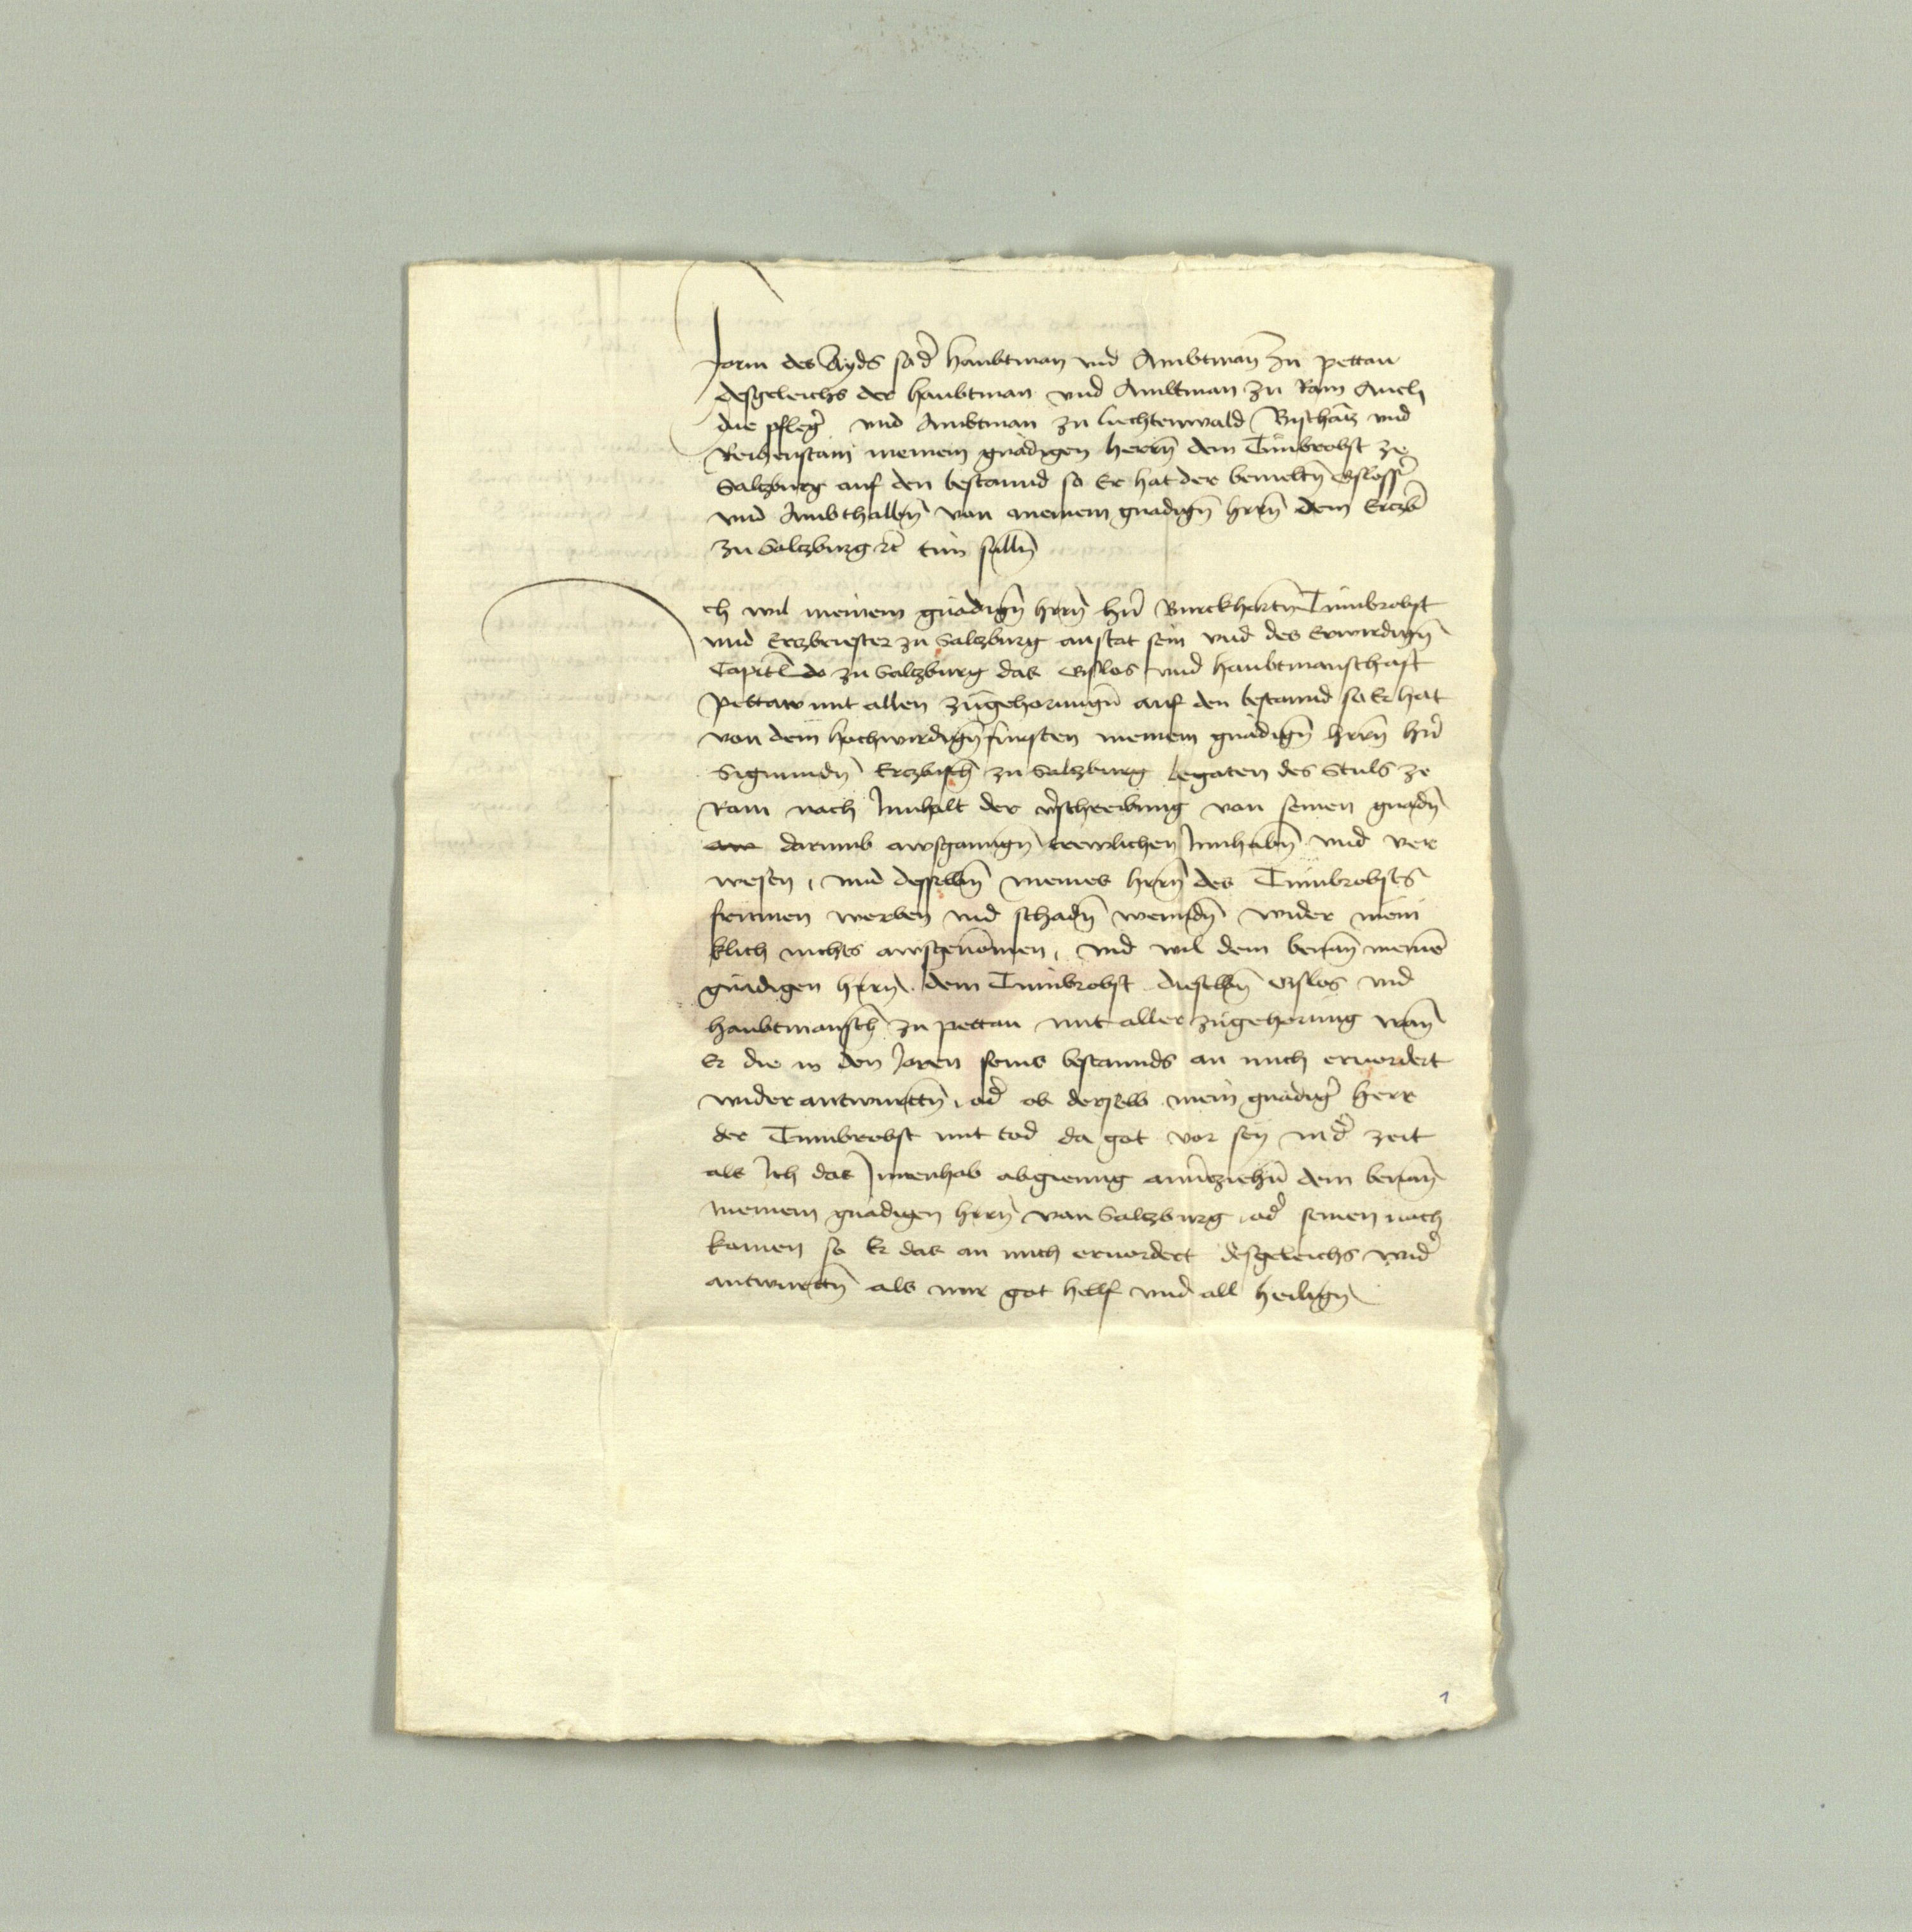 Form des Ayds so d̄ haubtman vnd Ambtman̄ zu pettau
desgeleichs der haubtman vnd Ambtman zu Ram Auch
die pfleḡ vnd Ambtman zu Liechtenwald Vischātz vnd
Reichenstain meinem gnädigen herrn̄ dem Tūmbrobst ze
Saltzburg auf den bestannd so Er hat der bemeltn̄ Gsloss̄
vnd Ambthallbn̄ von meinem gnadign̄ hrrn̄ dem Ertzb̄
zu Saltzburg etc̄ tun sulln̄
ch wil meinem gnädign̄ hrrn̄ hn̄ Burckhartn̄ Tumbrobst
vnd Ertzbriester zu Saltzburg anstat sein vnd des Erwirdign̄
Capitl̄ do zu Saltzburg das Gslos vnd haubtmanschaft
Pettaw mit allen zugehorungn̄ auf den bestannd so Er hat
von dem hochwirdign̄ fursten meinem gnädign̄ hrrn̄ hn̄
Sigmundn̄ Ertzbisch̄ zu Saltzburg Legaten des Stuls ze
Rom nach Innhalt der v̄schreibung von seinen gnadn̄
aw darumb awsganngn̄ trewlichen Innhabn̄ vnd ver
wesen, vnd desselbn̄ meines hrrn̄ des Tumbrobsts
frūmen werben vnd schadn̄ wenndn̄ wider meni
klich nichts awsgenōmen, vnd wil dem benan̄ meinē
gnadigen hrrn̄ dem Tumbrobst dieselbn̄ Gslos vnd
haubtmansch̄ zu pettau mit aller zugehorung wan̄
Er die in den Jaren seins bestannds an mich eruordert
wider antwurttn̄, od̄ ob derselb mein gnädiḡ herr
der Tumbrobst mit tod da got vor sey in d̄ zeit
als Ich das Innenhab abgienng aintziehn̄ dem benan̄
meinem gnadigen hrrn̄ von Saltzburg, od̄ seinen nach
komen so Er das an mich eruordert desgeleichs wid̄
antwurttn̄ als mir got hellf vnd all heilign̄
1